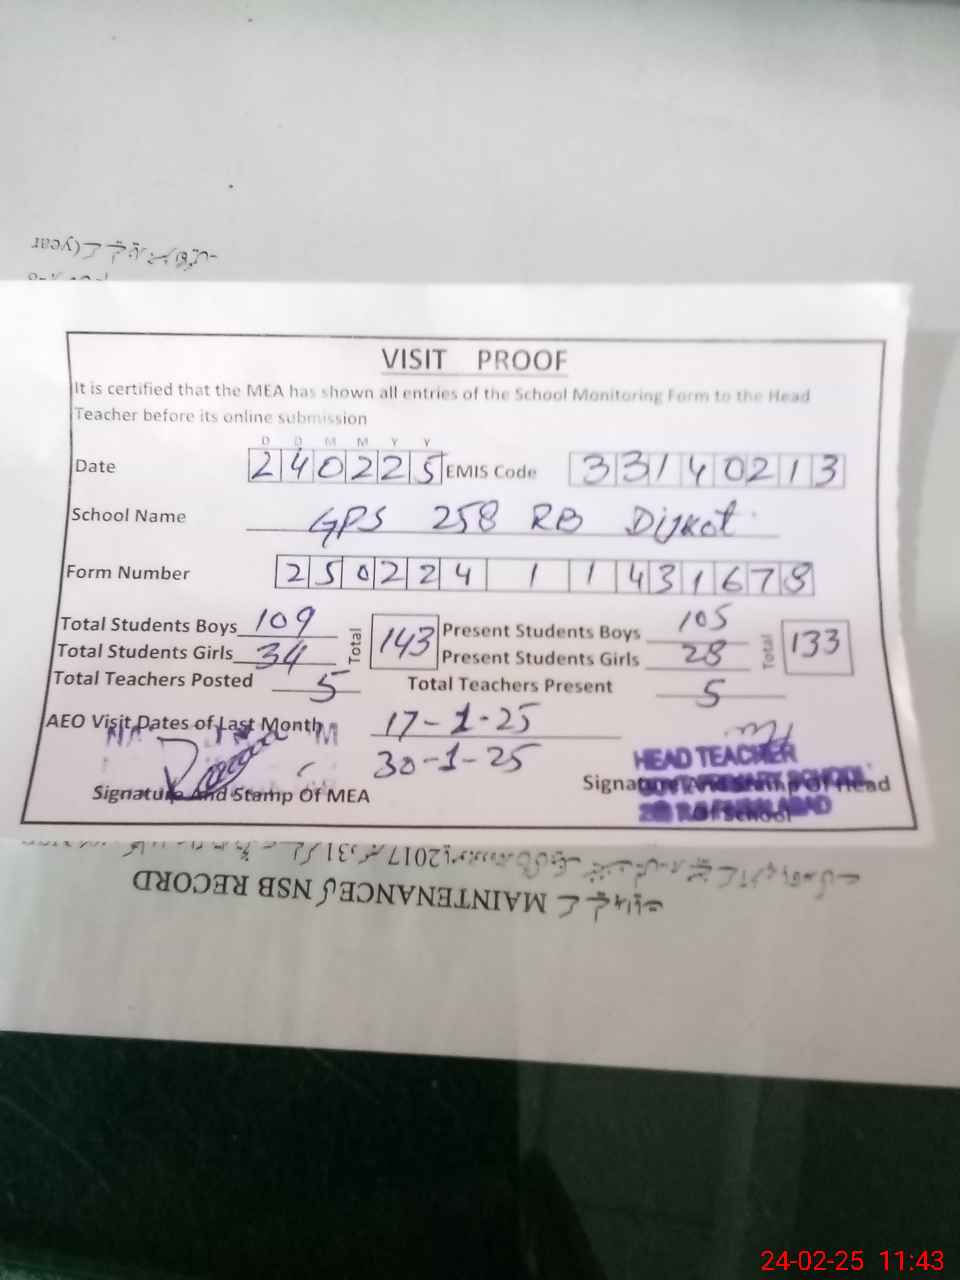 VISIT PROOF
It is certified that the MEA has shown all entries of the School Monitoring Form to the Head
Teacher before its online submission
D D M M Y Y
Date 240225 EMIS Code 33140213
School Name GPS 258 RB Dijkot
Form Number 250224 1 1 431678
Total Students Boys 109 Total 143 Present Students Boys 105 Total 133
Total Students Girls 34 Present Students Girls 28
Total Teachers Posted 5 Total Teachers Present 5
AEO Visit Dates of Last Month 17-1-25
30-1-25
HEAD TEACHER
Signature And Stamp Of MEA Signature And Stamp Of Head
of School
MAINTENANCE NSB RECORD
24-02-25 11:43